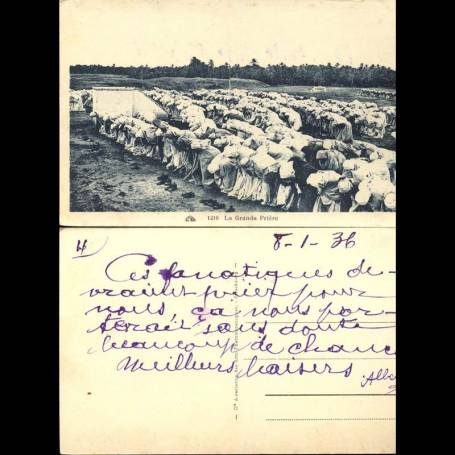 1216 La Grande Prière
4
8-1-36
Ces fanatiques de-
vraient prier pour
nous, ça nous por-
terait sans doute
beaucoup de chance
Meilleurs baisers